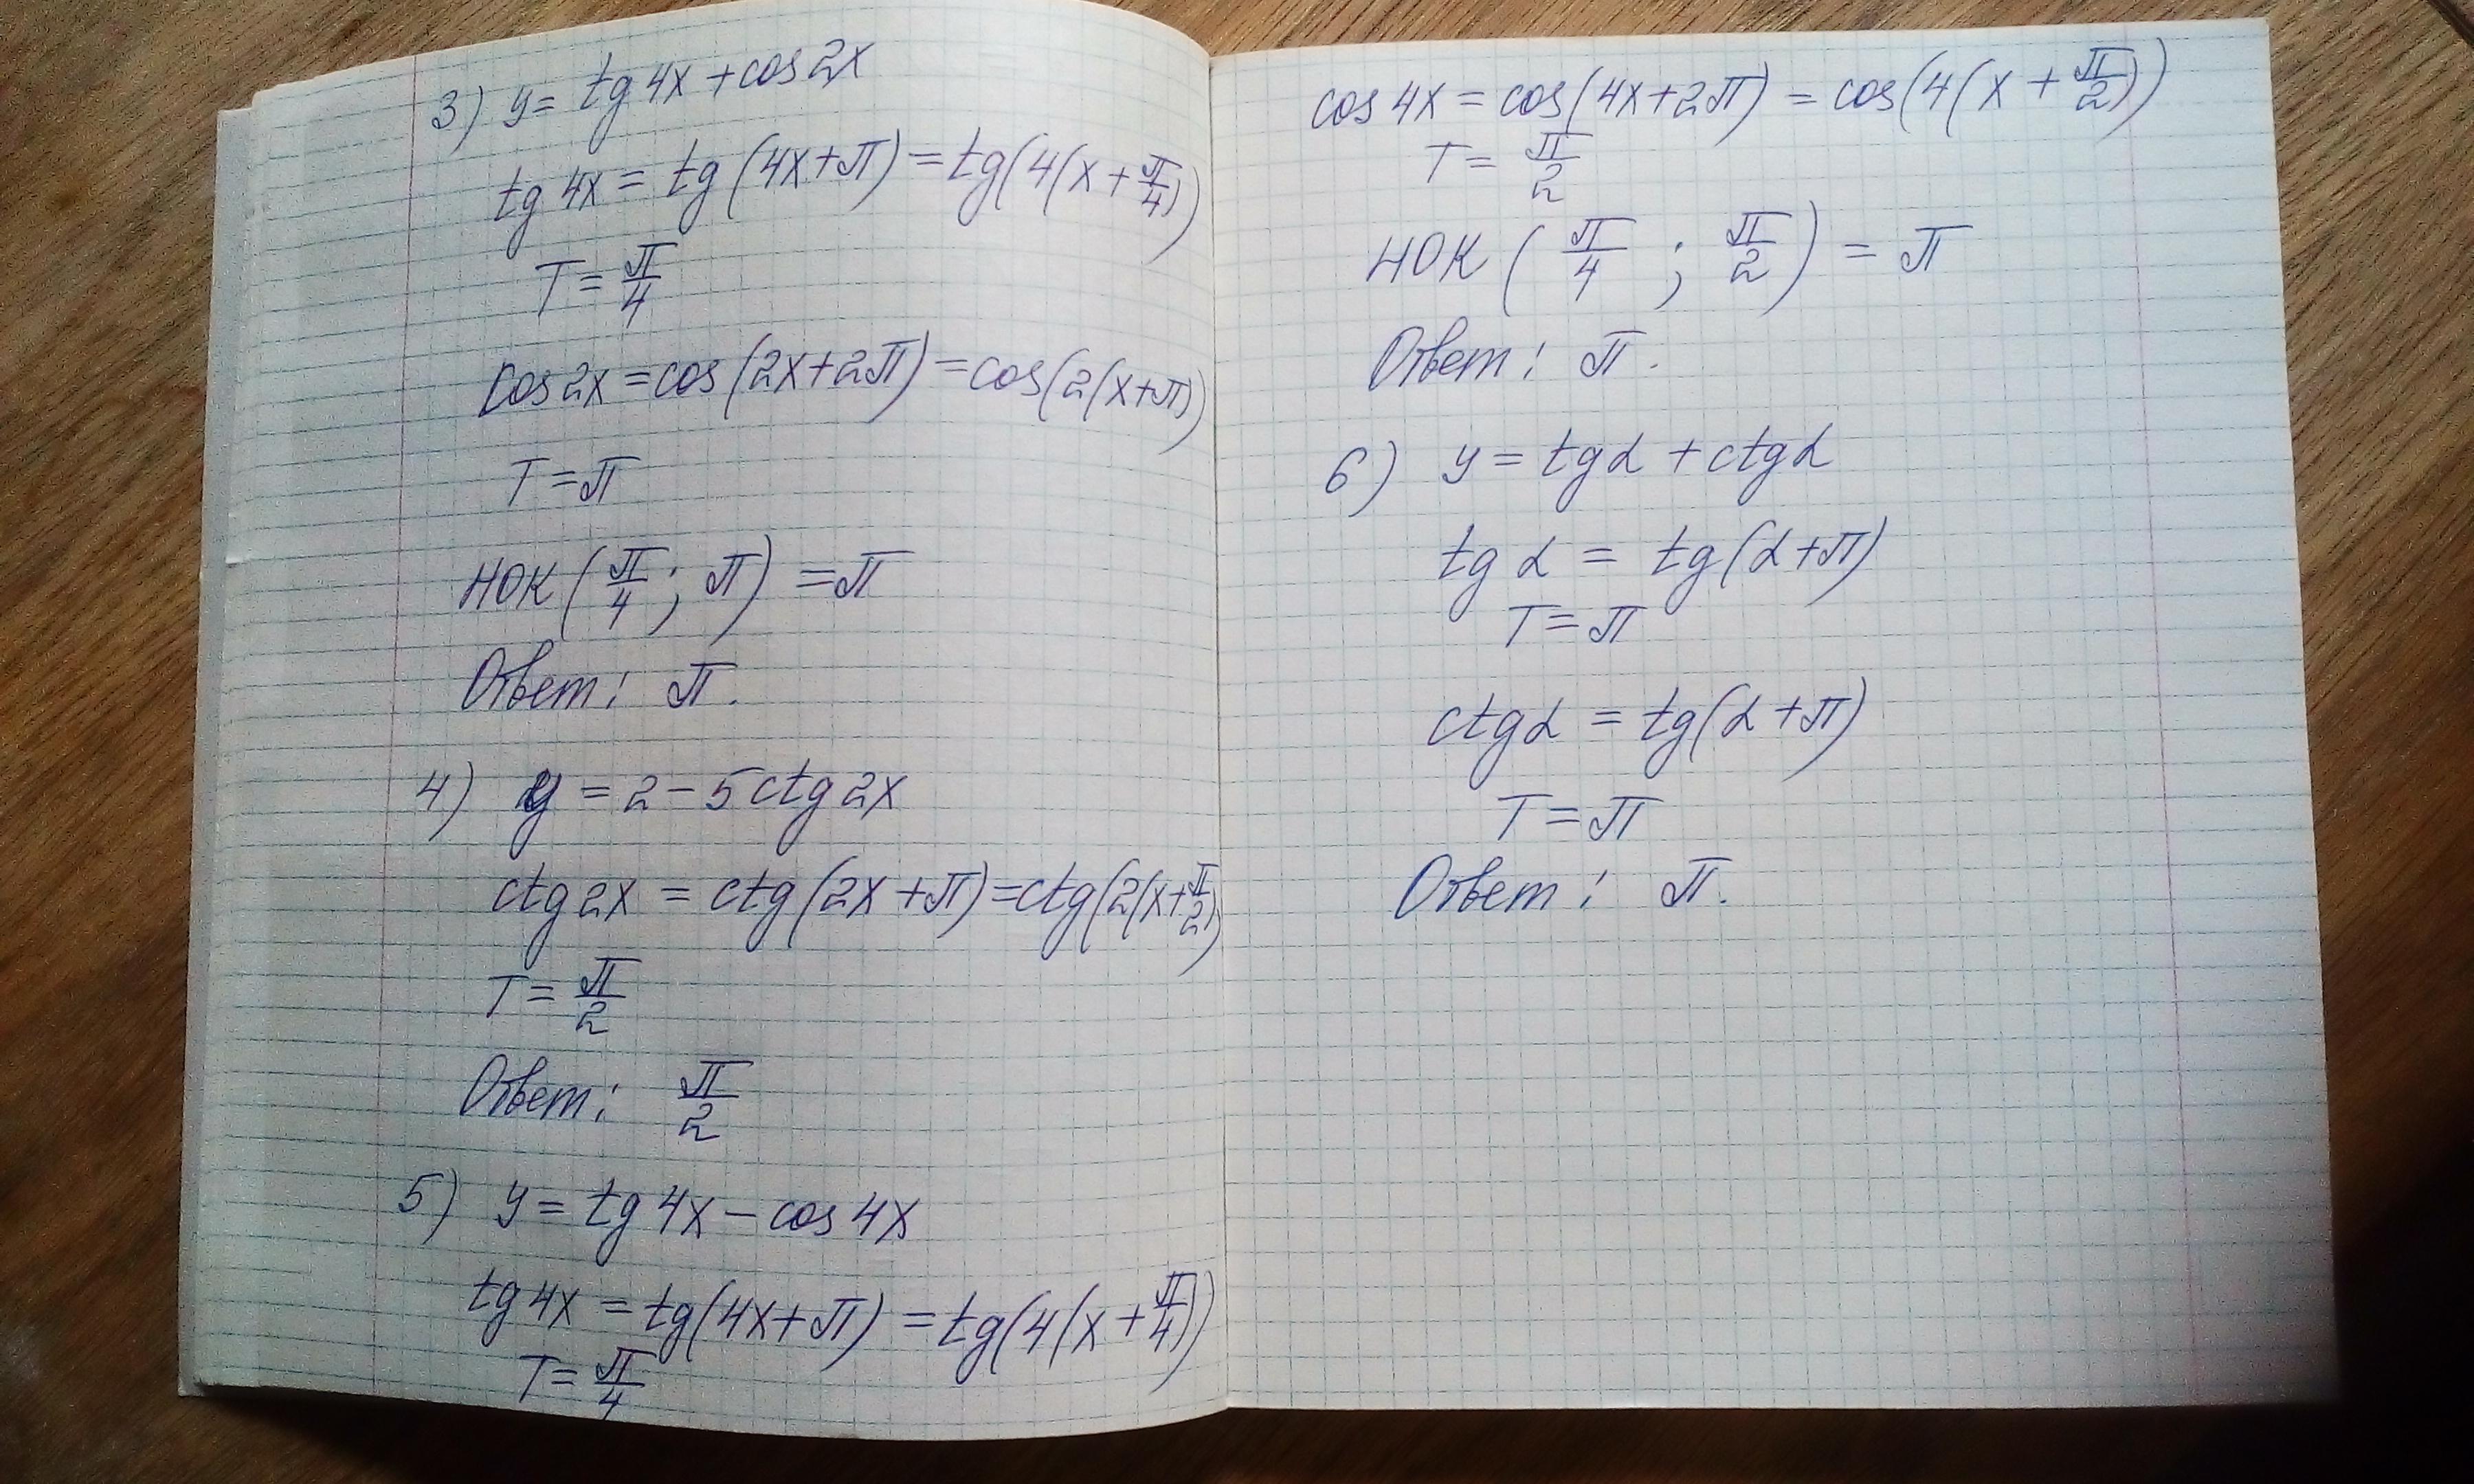 3) y = tg 4x + cos 2x
tg 4x = tg (4x+π) = tg(4(x + π/4))
T = π/4
cos 2x = cos (2x+2π) = cos(2(x+π))
T = π
НОК (π/4 ; π) = π
Ответ: π.
4) y = 2 - 5 ctg 2x
ctg 2x = ctg (2x + π) = ctg(2(x + π/2))
T = π/2
Ответ: π/2
5) y = tg 4x - cos 4x
tg 4x = tg(4x + π) = tg(4(x + π/4))
T = π/4
cos 4x = cos(4x+2π) = cos(4(x + π/2))
T = π/2
НОК (π/4 ; π/2) = π
Ответ: π.
6) y = tg α + ctg α
tg α = tg(α+π)
T = π
ctg α = tg(α + π)
T = π
Ответ: π.